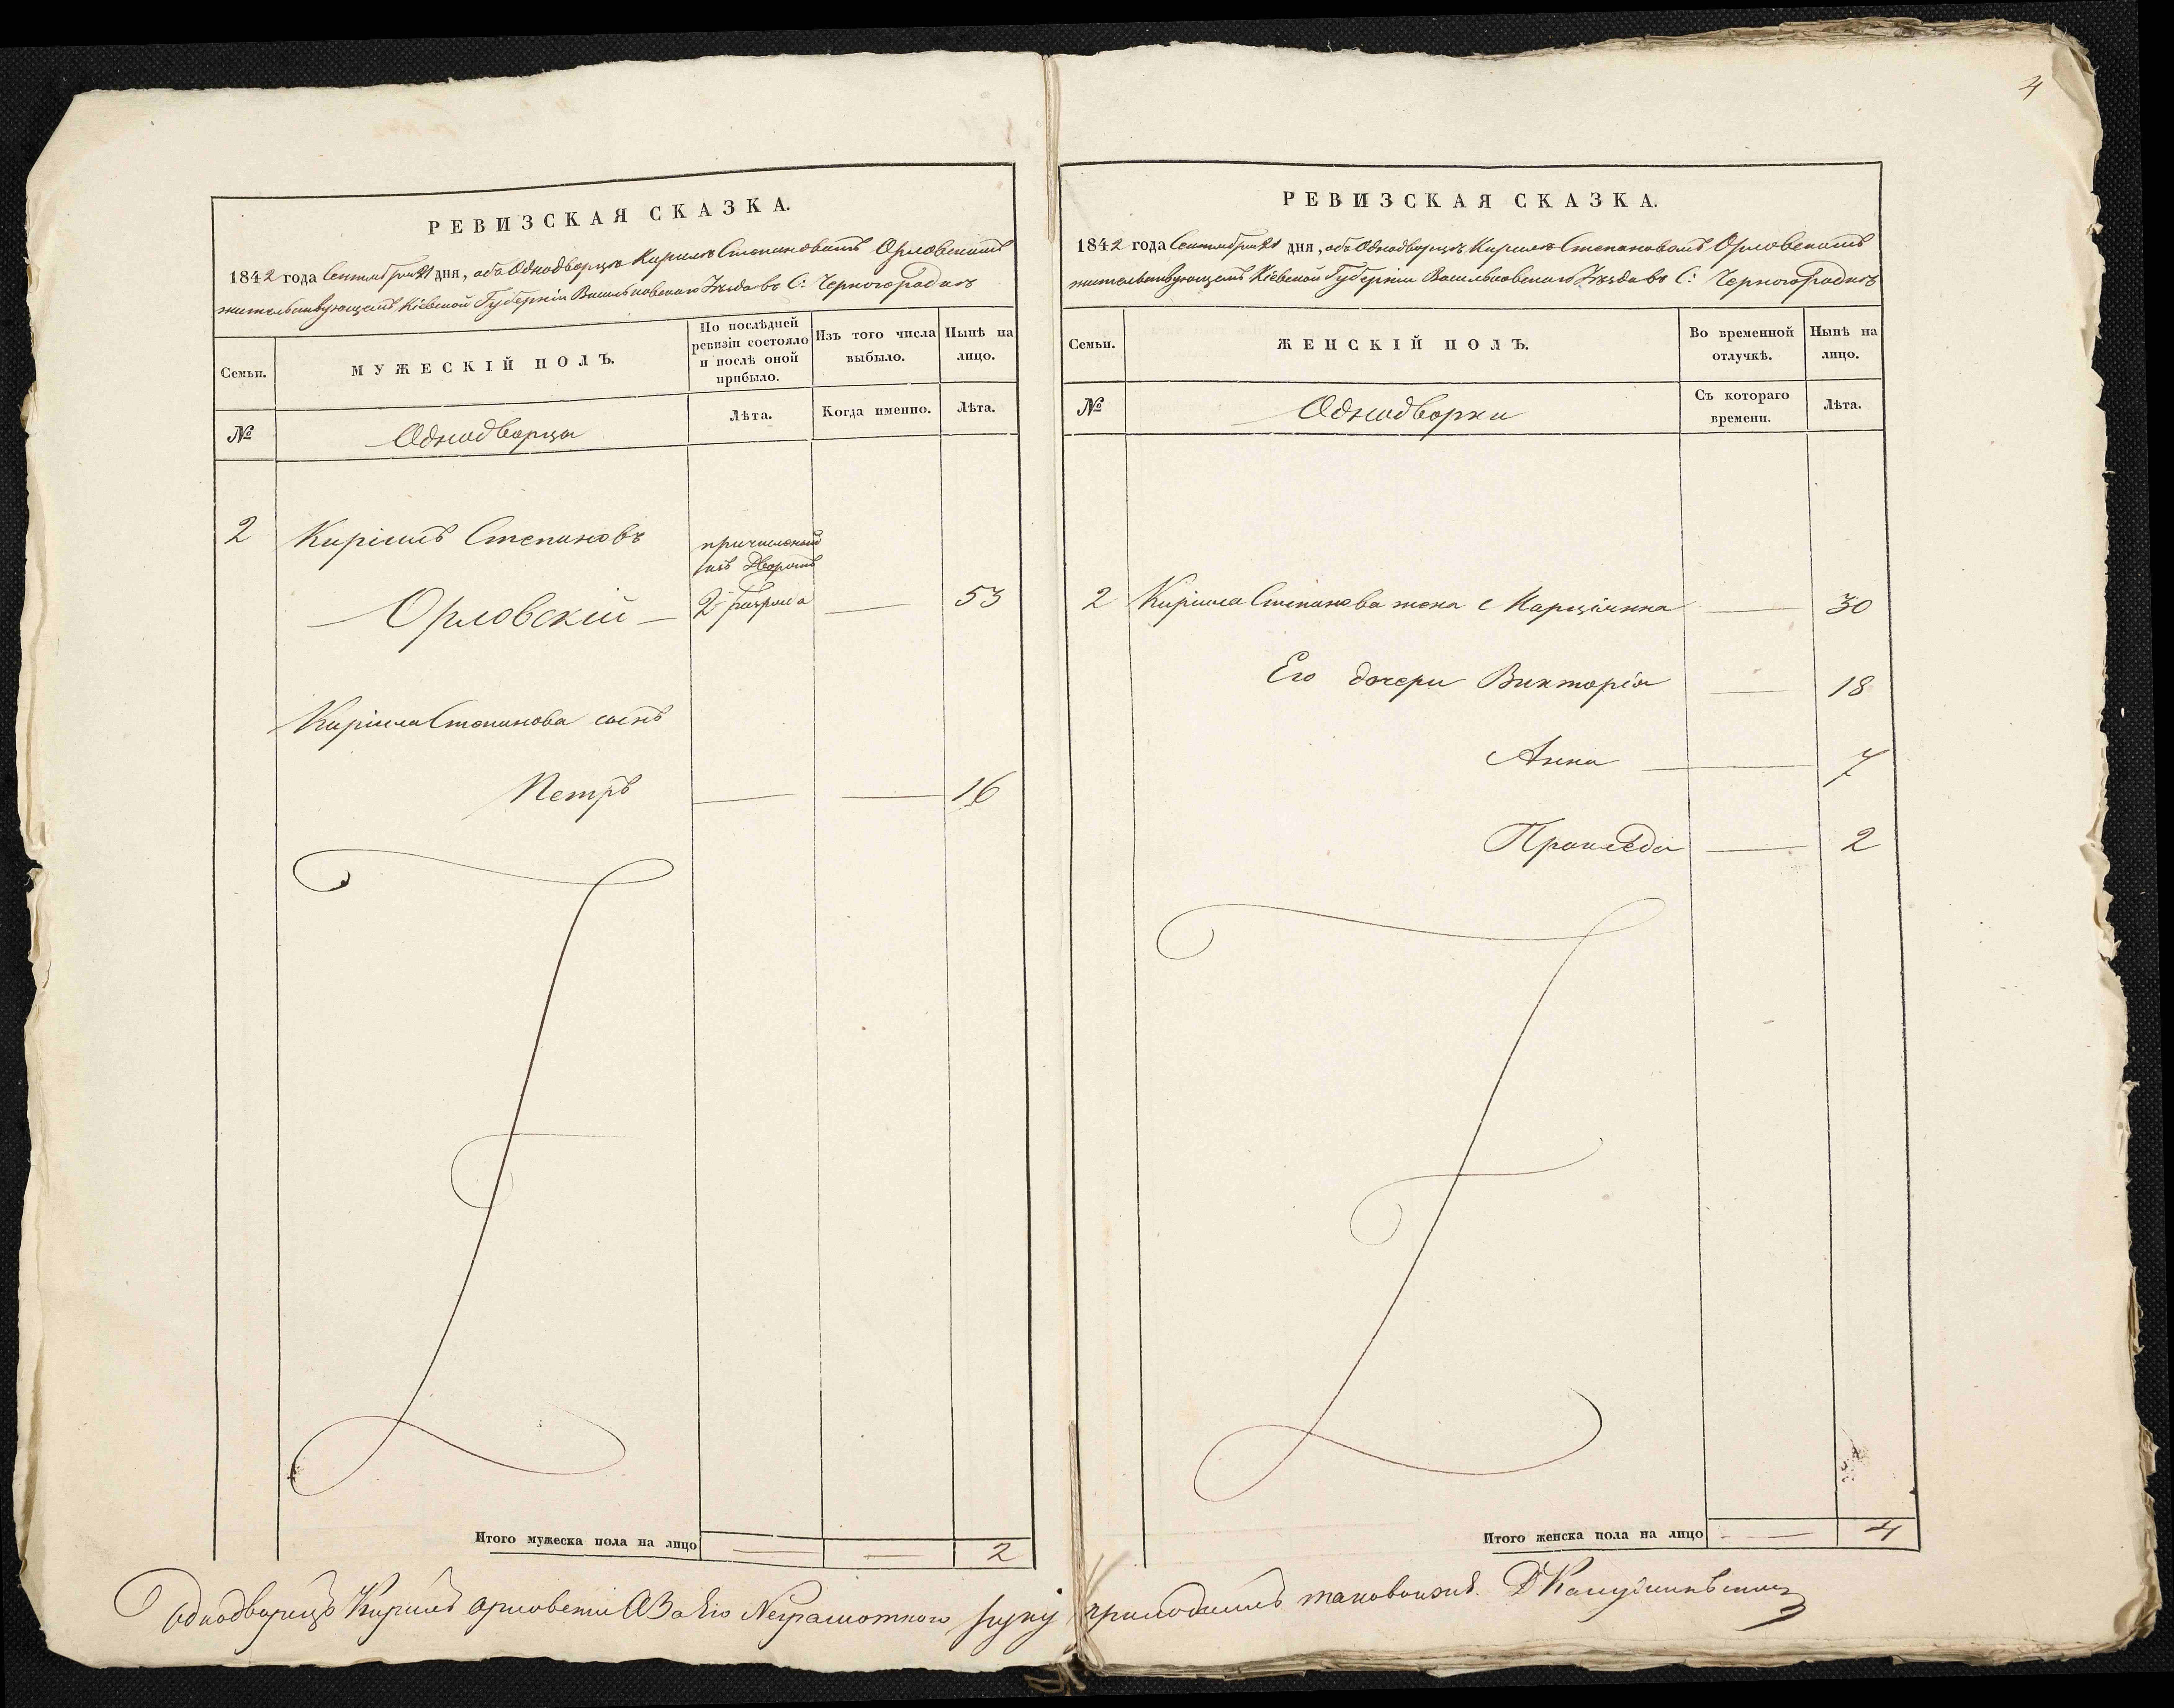 4
РЕВИЗСКАЯ СКАЗКА.
1842 года Сентября 21 дня, объ Однодворцѣ Кирилѣ Степановомъ Орловскомъ
жительствующемъ Кіевской Губерніи Васильковскаго Уѣзда въ С: Черногородкѣ
Семьи.
МУЖЕСКІЙ ПОЛЪ.
По послѣдней ревизіи состояло и послѣ оной прибыло.
Изъ того числа выбыло.
Нынѣ на лицо.
№
Однодворцы
Лѣта.
Когда именно.
Лѣта.
2 Кирилъ Степановъ причисленый
изъ Дворянъ
Орловскій 2 разряда — 53
Кирила Степанова сынъ
Петръ — — 16
Итого мужеска пола на лицо — — 2
РЕВИЗСКАЯ СКАЗКА.
1842 года Сентября 21 дня, объ Однодворцѣ Кирилѣ Степановомъ Орловскомъ
жительствующемъ Кіевской Губерніи Васильковскаго Уѣзда въ С: Черногородкѣ
Семьи.
ЖЕНСКІЙ ПОЛЪ.
Во временной отлучкѣ.
Нынѣ на лицо.
№
Однодворки
Съ котораго времени.
Лѣта.
2 Кирила Степанова жена Марціянна — 30
Его дочери Викторія — 18
Анна — 7
Праксeда — 2
Итого женска пола на лицо — — 4
Однодворецъ Кирилъ Орловскій А За Его Неграмотного руку приложилъ таковойже.